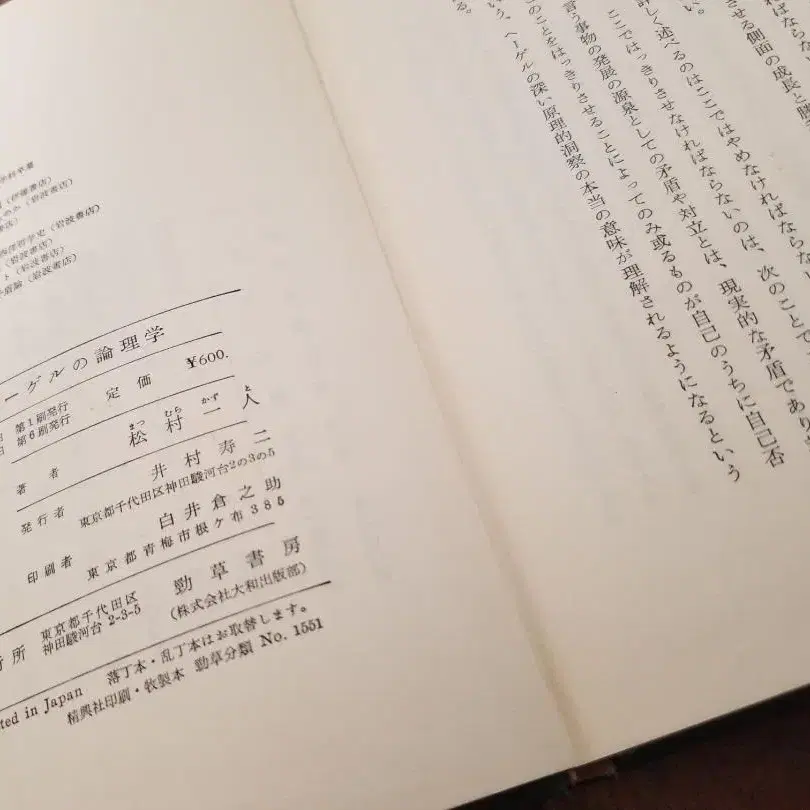 ればならない
させる側面の成長と勝
い。
詳しく述べるのはここではやめなければならない
ここではっきりさせなければならないのは、次のことで
言う事物の発展の源泉としての矛盾や対立とは、現実的な矛盾であり
このことをはっきりさせることによってのみ或るものが自己のうちに自己否
いう、ヘーゲルの深い原理的洞察の本当の意味が理解されるようになるという
る。
学科卒業
(伊藤書店)
(岩波書店)
西洋哲学史(岩波書店)
(岩波書店)
ト(岩波書店)
矛盾論(岩波書店)
ーゲルの論理学
定価 ¥600.
日 第1刷発行
日 第6刷発行
まつ むら かず と
著者 松村一人
発行者 井村寿二
東京都千代田区神田駿河台2の3の5
印刷者 白井倉之助
東京都青梅市根ケ布385
行所 東京都千代田区
神田駿河台 2-3-5
勁草書房
(株式会社大和出版部)
ted in Japan 落丁本・乱丁本はお取替します。
精興社印刷・牧製本 勁草分類 No. 1551